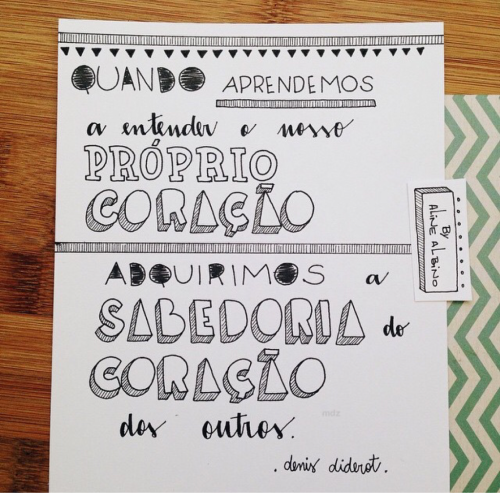 QUANDO APRENDEMOS
a entender o nosso
PRÓPRIO
CORAÇÃO
ADQUIRIMOS a
SABEDORIA do
CORAÇÃO
dos outros.
. denis diderot.
BY
ALINE ALBINO